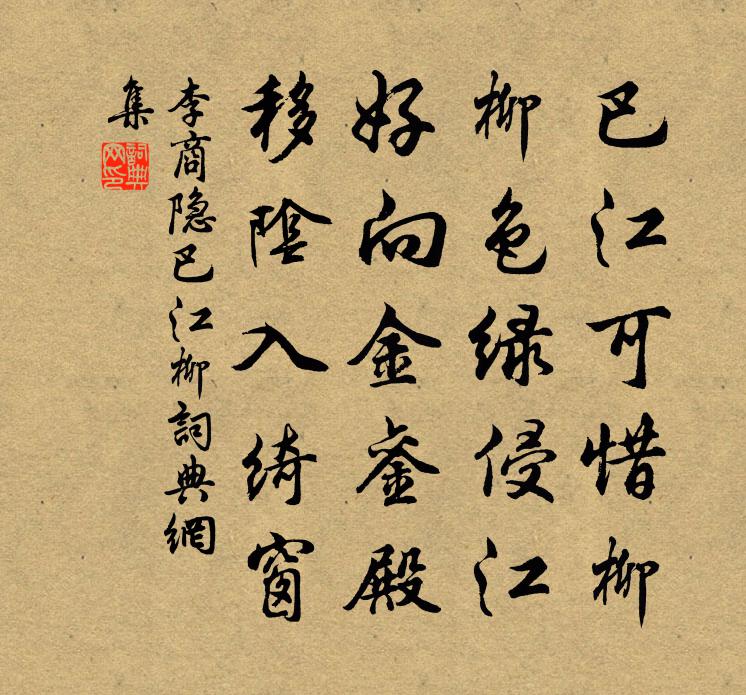 巴江可惜柳
柳色绿侵江
好向金銮殿
移陰入绮窗
李商隐巴江柳詞典網
集
詞典網印